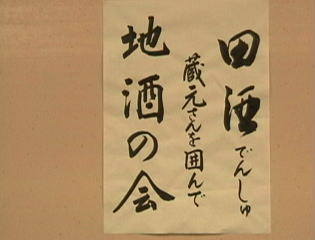 田酒でんしゅ
蔵元さんを囲んで
地酒の会